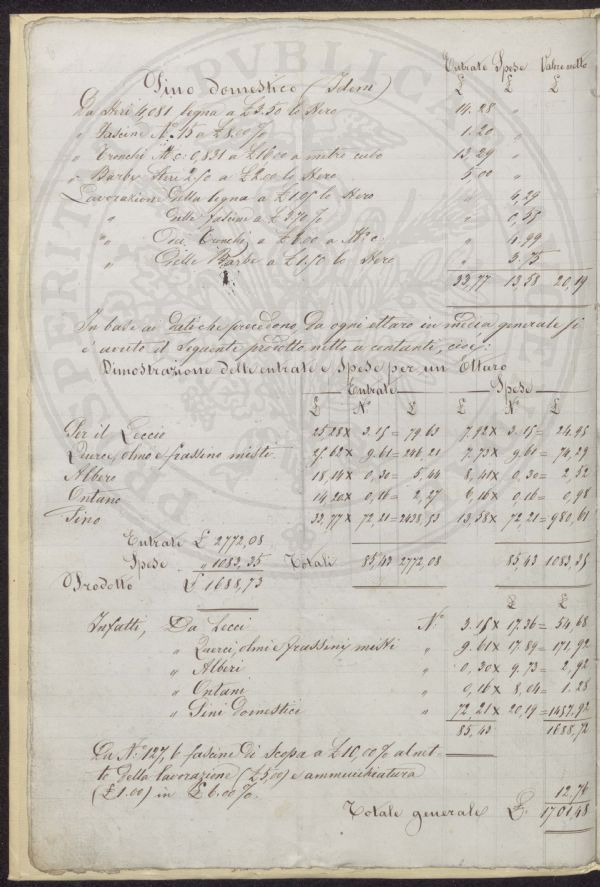 Entrate Spese Valore netto
Pino domestico (Idem) £ £ £
Da Steri 4,081 legna a £ 3.50 lo Stero 14.28 "
" Fascine N.° 15 a £ 8.00 % 1.20 "
" Tronchi M.c. 0,831 a £ 16.00 a metro cubo 13,29 "
" Barbe Steri 2,50 a £ 2.00 lo Stero 5,00 "
Lavorazione della legna a £ 1,05 lo Stero " 4,29
" delle fascine a £ 3,70 % " 0,55
" Dei Tronchi a £ 6.00 a M.° c. " 4.99
" Delle Barbe a £ 1.50 lo Stero " 3.75
33,77 13.58 20,19
In base ai dati che precedono, da ogni ettaro in media generale si
è avuto il seguente prodotto netto a contanti, cioè:
Dimostrazione delle entrate e Spese per un Ettaro
Entrate Spese
£ N.° £ £ N.° £
Per il Leccio 25,28 x 3.15 = 79,63 7,92 x 3.15 = 24,95
Querce, olmo e frassino misti 25,62 x 9.61 = 246,21 7,73 x 9,61 = 74,29
Albero 18,14 x 0,30 = 5,44 8,41 x 0,30 = 2,52
Ontano 14,20 x 0,16 = 2,27 6,16 x 0,16 = 0,98
Pino 33,77 x 72,21 = 2438,53 13,58 x 72,21 = 980,61
Entrate £ 2772,08
Spese " 1083,35 Totali 85,43 2772,08 85,43 1083,35
Prodotto £ 1688,73
£ £
Infatti, Da Lecci N.° 3.15 x 17,36 = 54,68
" Querci, olmi e frassini misti " 9.61 x 17,89 = 171,92
" Alberi " 0,30 x 9,73 = 2,92
" Ontani " 0,16 x 8,04 = 1.28
" Pini domestici " 72,21 x 20,19 = 1457,92
85,43 1688,72
Da N.° 127,6 fascine di scopa a £ 10,00 % al net-
to della lavorazione (£ 3,00) e ammucchiatura
(£ 1.00) in £ 6.00 %. 12,76
Totale generale £ 1701,48